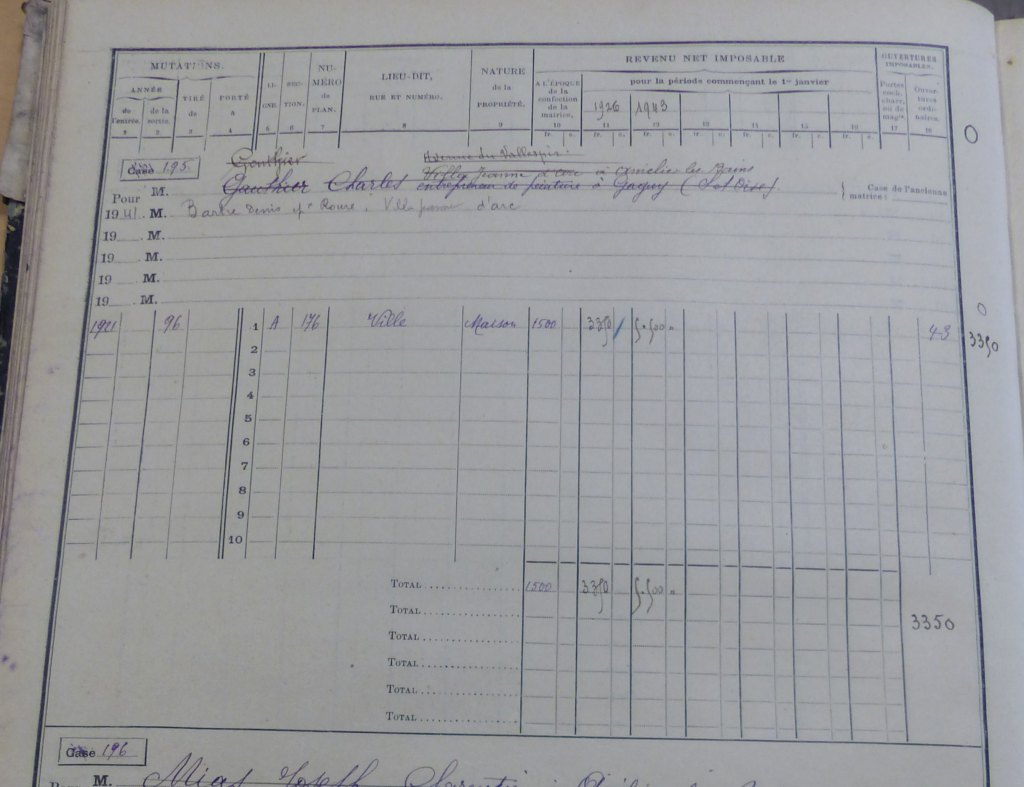 MUTATIONS.
ANNÉE
de l'entrée.
de la sortie.
TIRÉ de
PORTÉ à
LIGNE.
SECTION.
NUMÉRO de PLAN.
LIEU-DIT,
RUE ET NUMÉRO.
NATURE de la PROPRIÉTÉ.
REVENU NET IMPOSABLE
À L'ÉPOQUE de la confection de la matrice.
pour la période commençant le 1er janvier
1926 1943
OUVERTURES IMPOSABLES.
Portes coch. charr. ou de magin.
Ouvertures ordinaires.
1 2 3 4 5 6 7 8 9 10 11 12 13 14 15 16 17 18
fr. c. fr. c. fr. c. fr. c. fr. c. fr. c. fr. c.
Case 195
Gauthier
Avenue du Vallespir
Villa Jeanne d'arc à Amélie les Bains
Pour M. Gauthier Charles entrepreneur de peinture à Gagny (S. et Oise).
Case de l'ancienne matrice :
1941. M. Barbe Denis Roure, Villa d'arc
19 M.
19 M.
19 M.
19 M.
1921 96 1 A 176 Ville Maison 1500 3350 5.500 43 3350
2
3
4
5
6
7
8
9
10
TOTAL 1500 3350 5.500
TOTAL
3350
TOTAL
TOTAL
TOTAL
TOTAL
Case 196
M. Mias Joseph